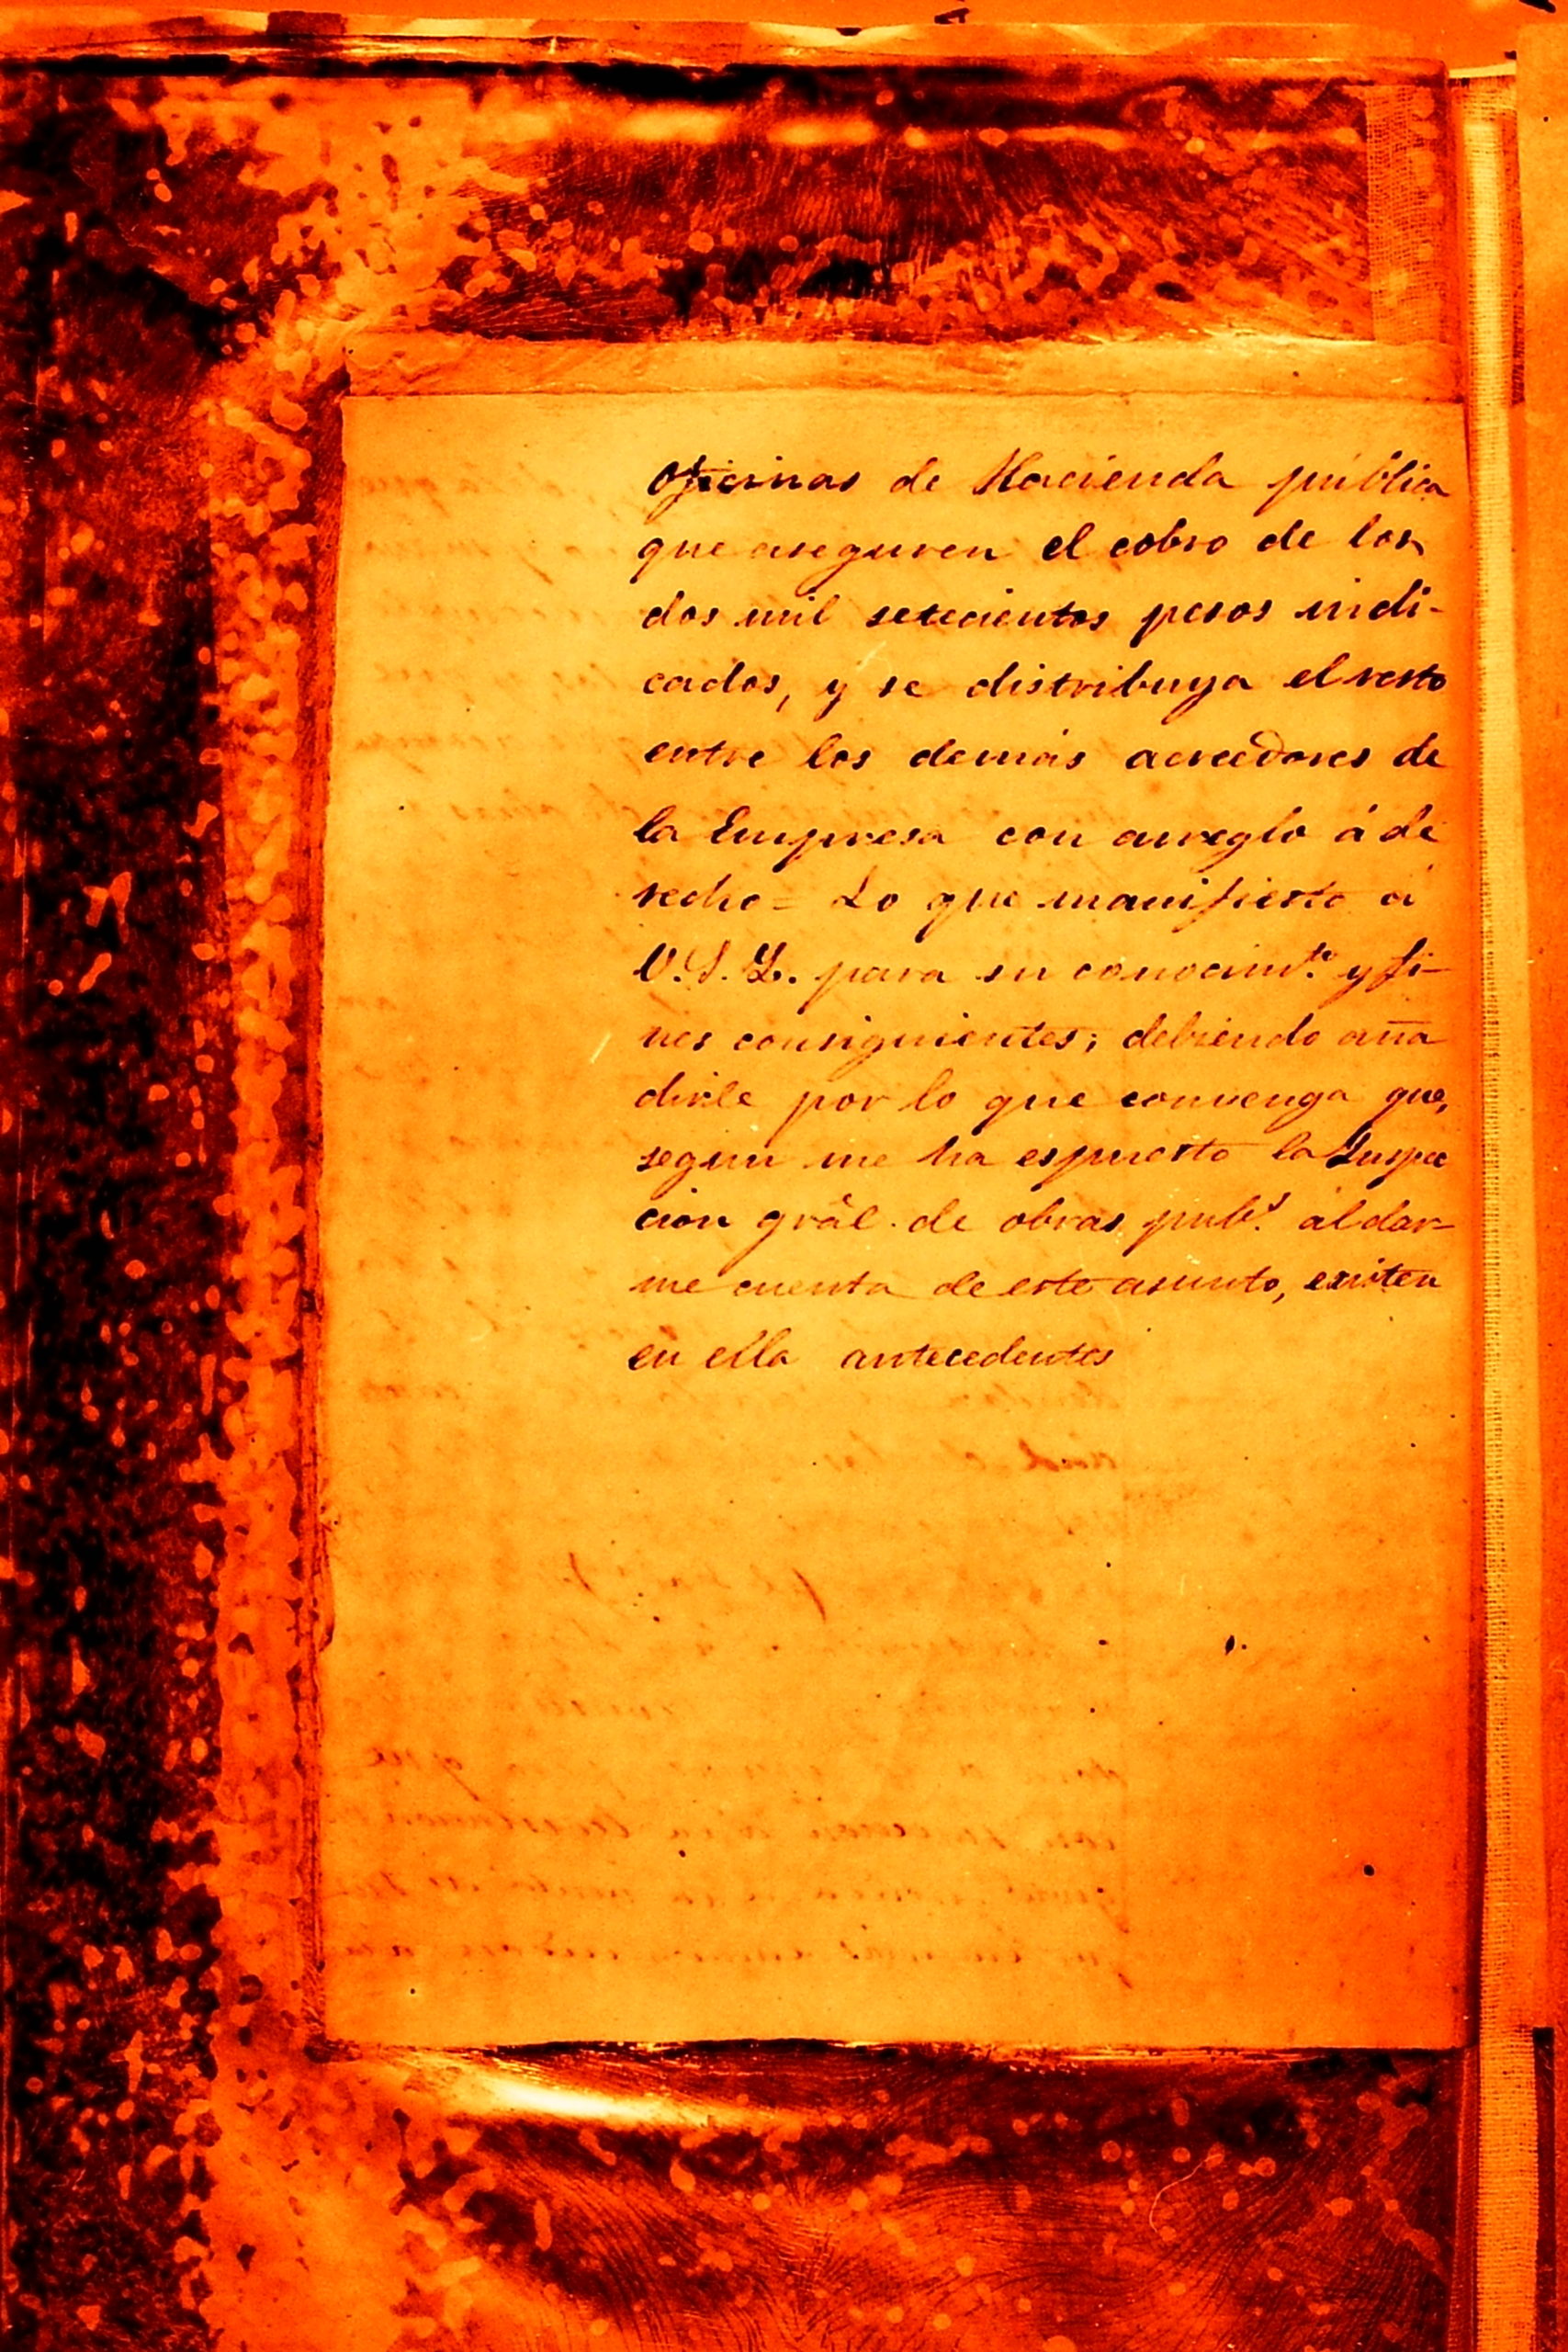 Oficinas de Hacienda pública
que aseguren el cobro de los
dos mil setecientos pesos indi-
cados, y se distribuya el resto
entre los demás acreedores de
la Empresa con arreglo á de
recho = Lo que manifiesto á
V.S.Y. para su conocimto. y fi-
nes consiguientes; debiendo aña
dirle por lo que convenga que,
segun me ha espuesto la Inspec
cion grâl. de obras pubs. al dar-
me cuenta de este asunto, existen
en ella antecedentes